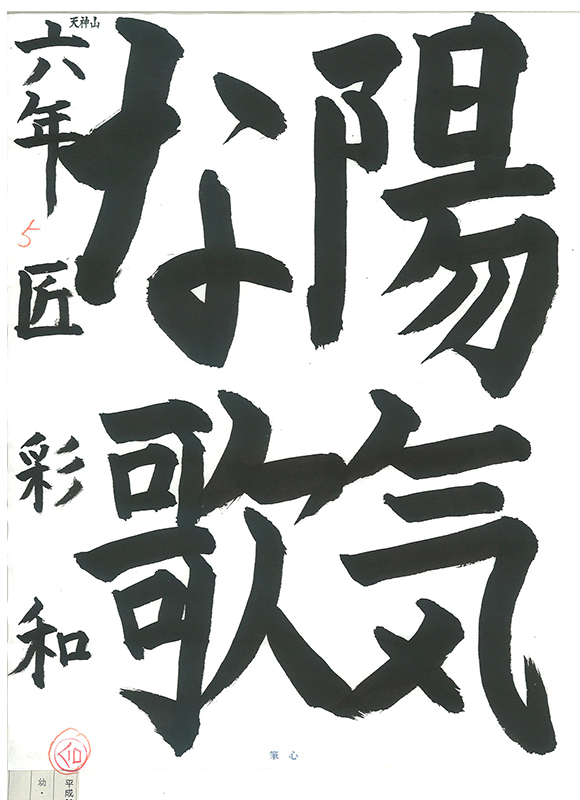 陽気
な歌
天神山
六年
5
匠
彩
和
筆心
幼・
平成